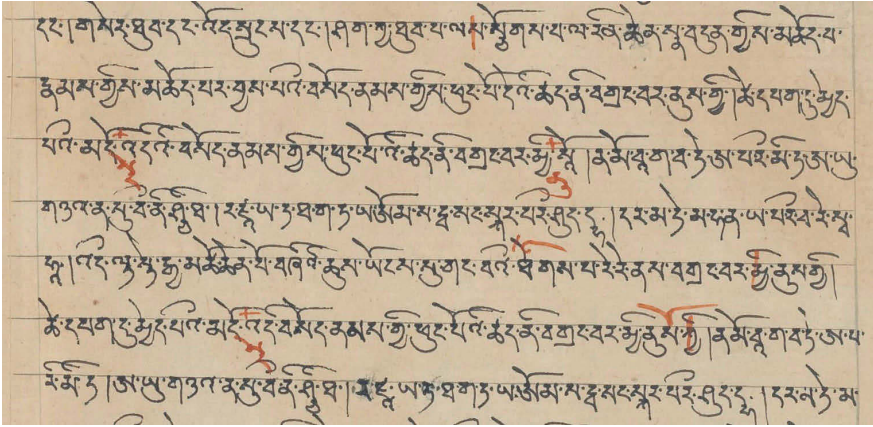 དང་། །གསེར་ཐུབ་དང་འོད་སྲུངས་དང་། །ཤག་ཀྱ་ཐུབ་པ་ལས་སྩོགས་པ་ལ་རིན་ཆེན་སྣ་བདུན་གྱིས་མཆོད་པ་
རྣམས་གྱིས་མཆོད་པར་བྱས་པའི་བསོད་ནམས་གྱིས་ཕུང་པོ་དེའི་ཚད་ནི་བགྲང་བར་ནུས་གྱི། །ཚེ་དཔག་དུ་མྱེད་
པའི་མདོ་འདི་འི་བསོད་ནམས་གྱིས་ཕུང་པོ་འི་ཚད་ནི་བགྲང་བར་མྱི་ནུསོ། །ན་མོ་བྷ་ག་བ་ཏེ་ཨ་པ་རི་མི་ཏ་ཨ་ཡུ་
གཉའ་ན་སུ་བི་ནི་ཤྩི་ཏ། ར་ཛཱ་ཡ་ཏ་ཐ་ག་ཏ་ཡ་ཨོམ་ས་རྦ་སང་སྐ་ར་པ་རི་ཤུད་དྷ། །དར་མ་ཏེ་མ་ཧ་ན་ཡ་པ་རི་བ་རེ་སྭ་
ཧཱ། །འདི་ལྟ་སྟེ་རྒྱ་མཚོ་ཆེན་པོ་བཞི་འི་ཆུས་ཡོངས་སུ་གང་བའི་ཐིགས་པ་རེ་རེ་ནས་བགྲང་བར་མྱི་ནུས་གྱི།
ཚེ་དཔག་དུ་མྱེད་པའི་མདོ་འདི་བསོད་ནམས་གྱི་ཕུང་པོ་འི་ཚད་ནི་བགྲང་བར་མྱི་ནུས་ཀྱི། །ན་མོ་བྷ་ག་བ་ཏེ་ཨ་པ་
རི་མི་ཏ། །ཨ་ཡུ་གཉའ་ན་སུ་བི་ནི་ཤྩི་ཏ། ར་ཛཱ་ཡ་ཏ་ཐ་ག་ཏ་ཡ་ཨོམ་ས་རྦ་སང་སྐ་ར་པ་རི་ཤུད་དྷ། །དར་མ་ཏེ་མ་